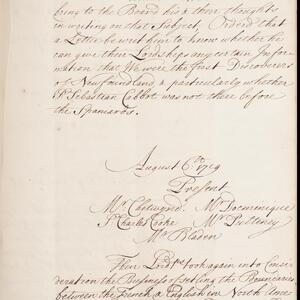 bring to the Board his & their thoughts
in writing on that Subject, Order'd that
a Letter be writ him to know whether he
can give their Lordships any certain Infor-
mation that We were the first Discoverers
of Newfoundland & particularly whether
Sr. Sebastian Cabbot was not there before
the Spaniards.
August 6th. 1719
Present
Mr. Chetwynd. Mr. Docminique
Sr. Charles Cooke Mr. Pulteney
Mr. Bladen
Their Lordps. took again into Consi-
deration the Business of settling the Boundaries
between the French & English in North Ame-